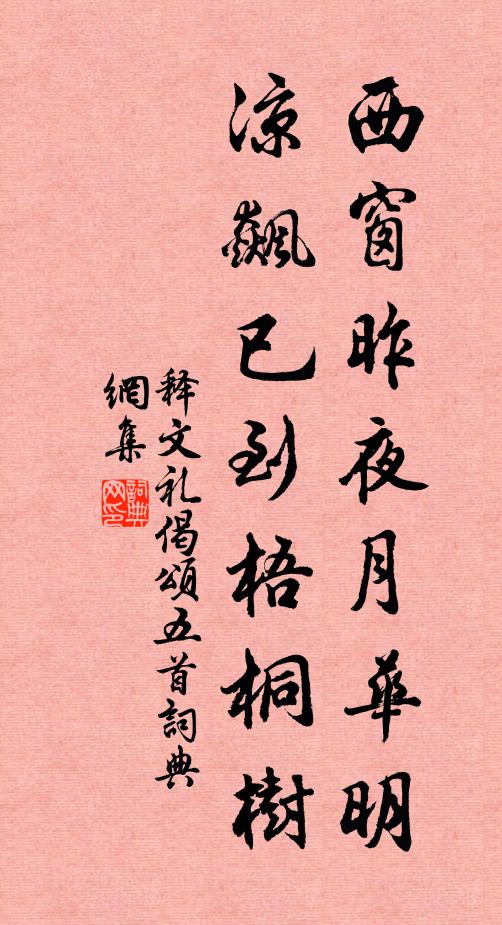 西窗昨夜月華明
凉飆已到梧桐樹
释文礼偈頌五首詞典
網集
詞典網印